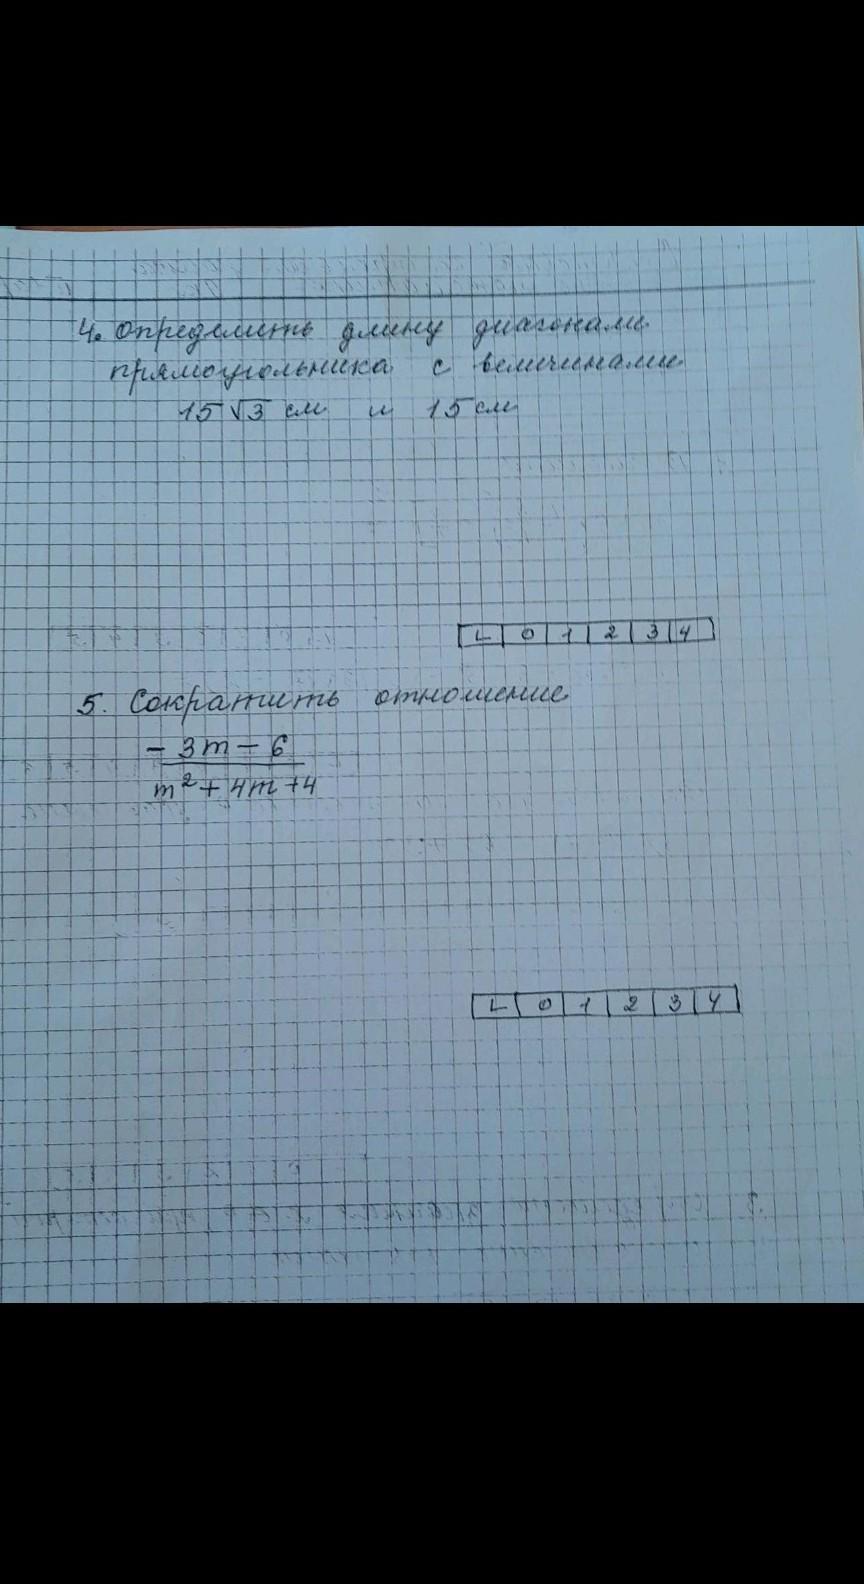 4. Определить длину диагонали
прямоугольника с величинами
15√3 см и 15 см
L 0 1 2 3 4
5. Сократить отношение
- 3m - 6
m² + 4m + 4
L 0 1 2 3 4